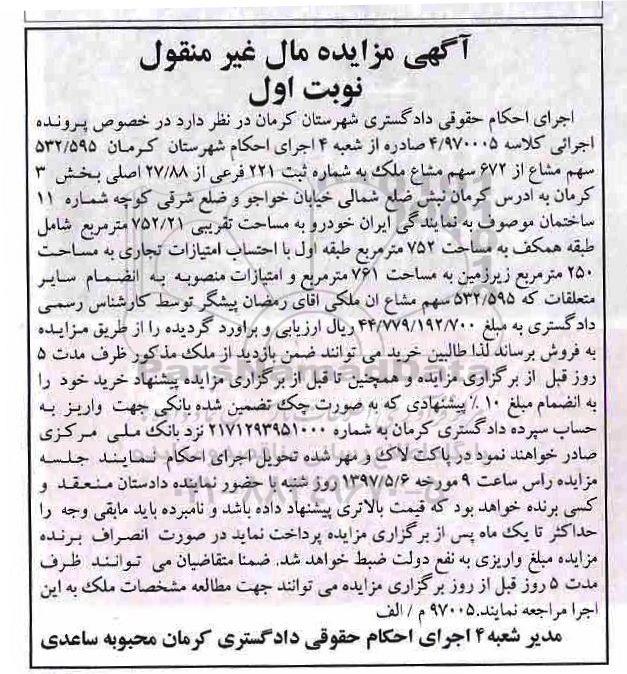 آگهی مزایده مال غیر منقول
نوبت اول
اجرای احکام حقوقی دادگستری شهرستان کرمان در نظر دارد در خصوص پرونده
اجرائی کلاسه ۴/۹۷۰۰۰۵ صادره از شعبه ۴ اجرای احکام شهرستان کرمان ۵۳۲/۵۹۵
سهم مشاع از ۶۷۲ سهم مشاع ملک به شماره ثبت ۲۲۱ فرعی از ۲۷/۸۸ اصلی بخش ۳
کرمان به ادرس کرمان نبش ضلع شمالی خیابان خواجو و ضلع شرقی کوچه شماره ۱۱
ساختمان موصوف به نمایندگی ایران خودرو به مساحت تقریبی ۷۵۲/۲۱ مترمربع شامل
طبقه همکف به مساحت ۷۵۲ مترمربع طبقه اول با احتساب امتیازات تجاری به مساحت
۲۵۰ مترمربع زیرزمین به مساحت ۷۶۱ مترمربع و امتیازات منصوبه به انضمام سایر
متعلقات که ۵۳۲/۵۹۵ سهم مشاع ان ملکی اقای رمضان پیشگر توسط کارشناس رسمی
دادگستری به مبلغ ۴۴/۷۷۹/۱۹۲/۷۰۰ ریال ارزیابی و براورد گردیده را از طریق مزایده
به فروش برساند لذا طالبین خرید می توانند ضمن بازدید از ملک مذکور ظرف مدت ۵
روز قبل از برگزاری مزایده و همچنین تا قبل از برگزاری مزایده پیشنهاد خرید خود را
به انضمام مبلغ ۱۰ ٪ پیشنهادی که به صورت چک تضمین شده بانکی جهت واریز به
حساب سپرده دادگستری کرمان به شماره ۲۱۷۱۲۹۳۹۵۱۰۰۰ نزد بانک ملی مرکزی
صادر خواهند نمود در پاکت لاک و مهر شده تحویل اجرای احکام نمایند جلسه
مزایده راس ساعت ۹ مورخه ۱۳۹۷/۵/۶ روز شنبه با حضور نماینده دادستان منعقد و
کسی برنده خواهد بود که قیمت بالاتری پیشنهاد داده باشد و نامبرده باید مابقی وجه را
حداکثر تا یک ماه پس از برگزاری مزایده پرداخت نماید در صورت انصراف برنده
مزایده مبلغ واریزی به نفع دولت ضبط خواهد شد. ضمنا متقاضیان می توانند ظرف
مدت ۵ روز قبل از روز برگزاری مزایده می توانند جهت مطالعه مشخصات ملک به این
اجرا مراجعه نمایند.۹۷۰۰۵ م / الف
مدیر شعبه ۴ اجرای احکام حقوقی دادگستری کرمان محبوبه ساعدی
ParsNamadData